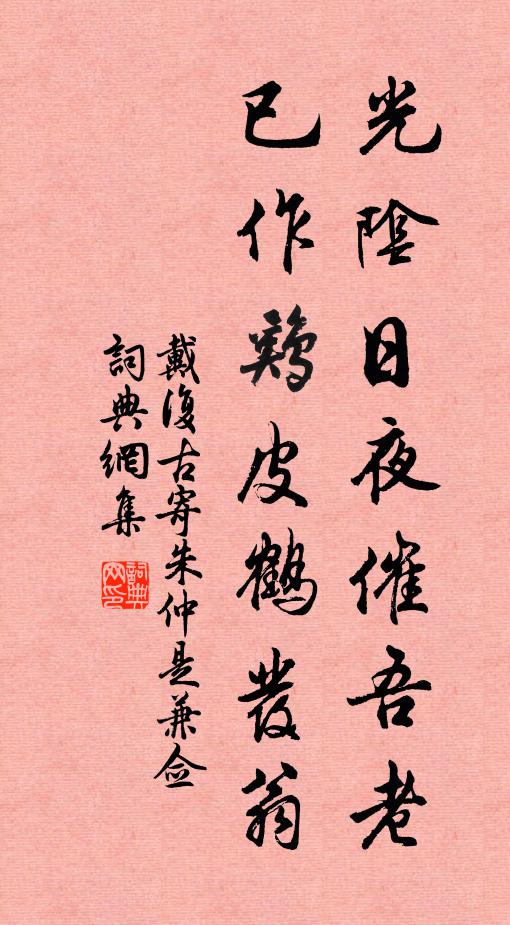 光陰日夜催吾老
已作鷄皮鶴發翁
戴復古寄朱仲是兼僉
詞典網集
詞典
网印